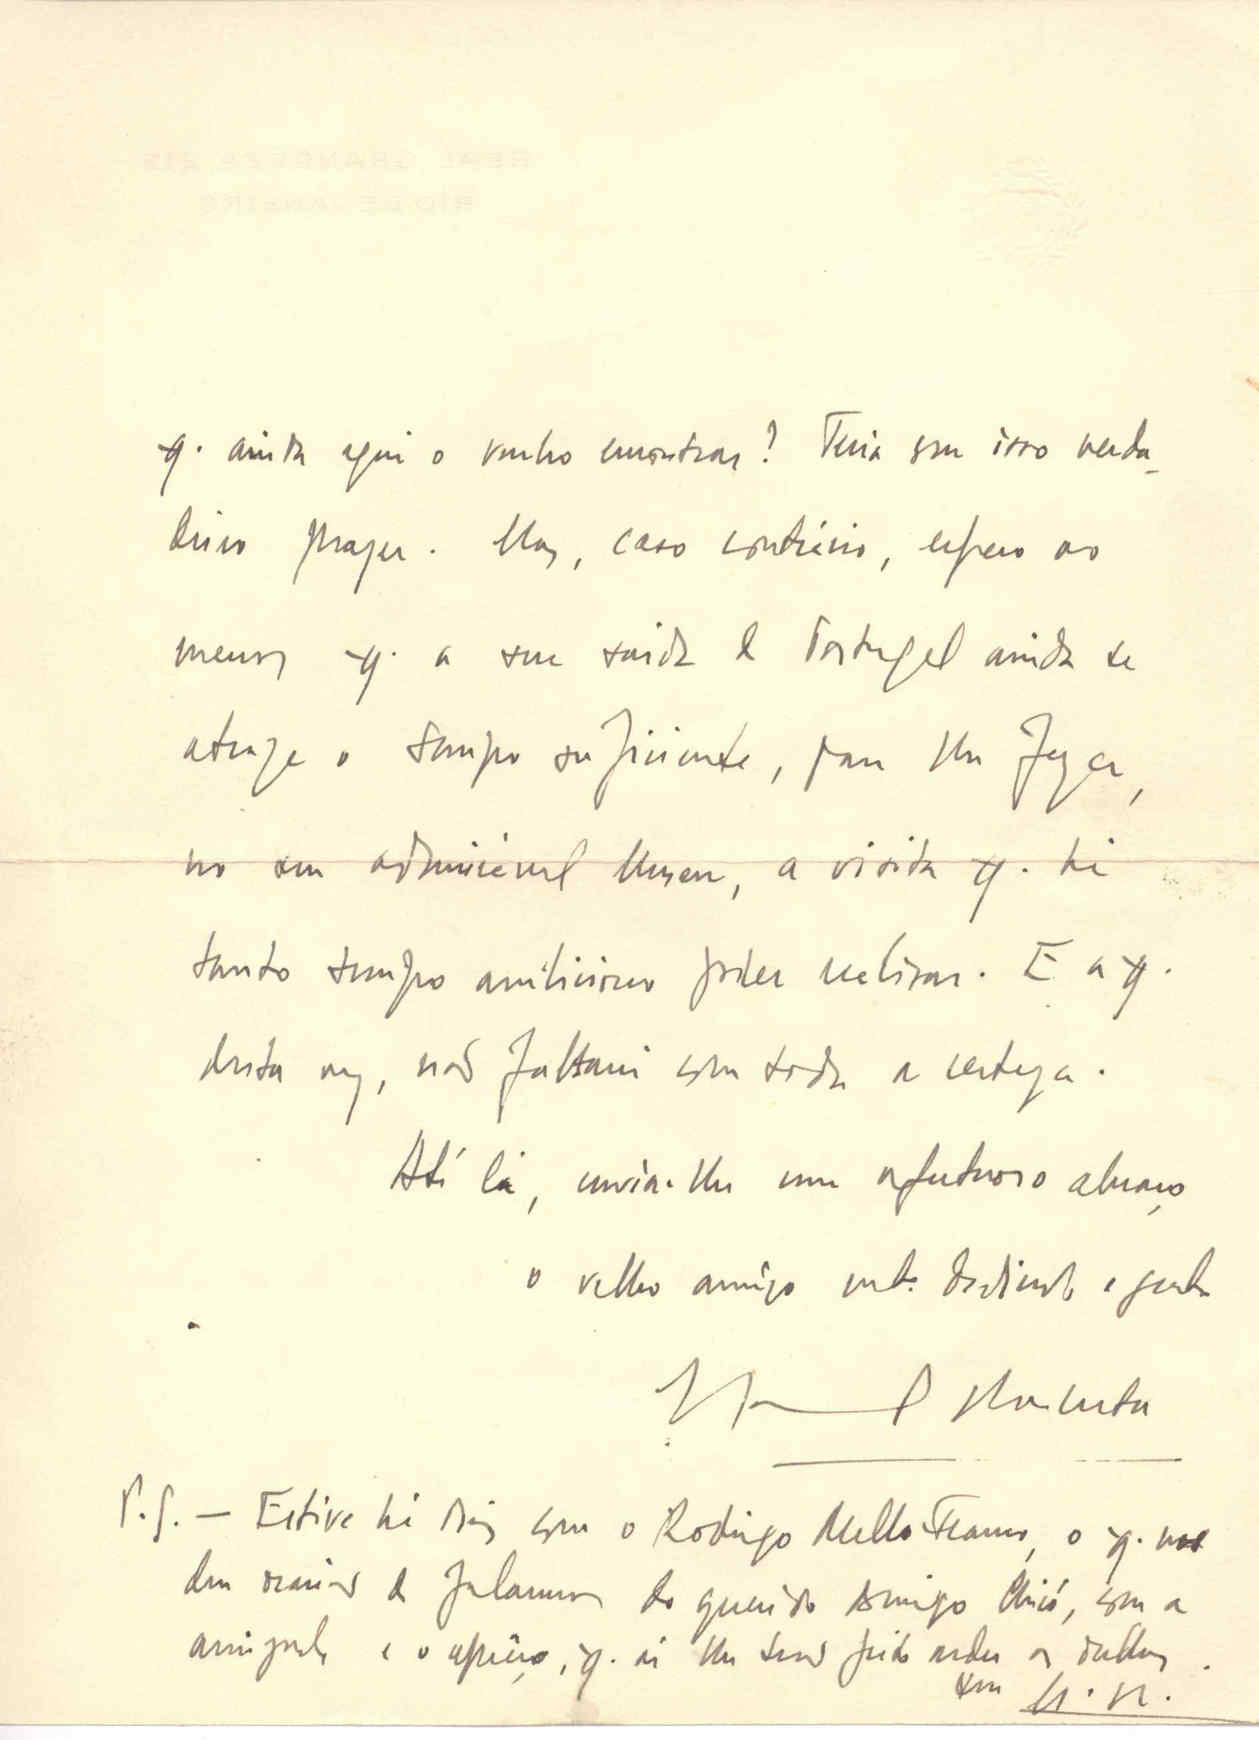 REAL GRANDEZA 215
RIO DE JANEIRO
q. ainda aqui o venho encontrar? Teria com isso verda-
deiro prazer. Mas, caso contrário, espero ao
menos q. a sua saída de Portugal ainda se
atraze o tempo suficiente, para lhe fazer,
no seu admirável Museu, a visita q. há
tanto tempo ambiciono poder realizar. E a q.
desta vez, não faltarei com toda a certeza.
Até lá, envia-lhe um afectuoso abraço
o velho amigo mto. dedicado e grato
P.S. — Estive há dias com o Rodrigo Mello Franco, o q. nos
deu ocasião de falarmos do querido Amigo Chicó, com a
amizade e o apreço, q. ai lhe
seu